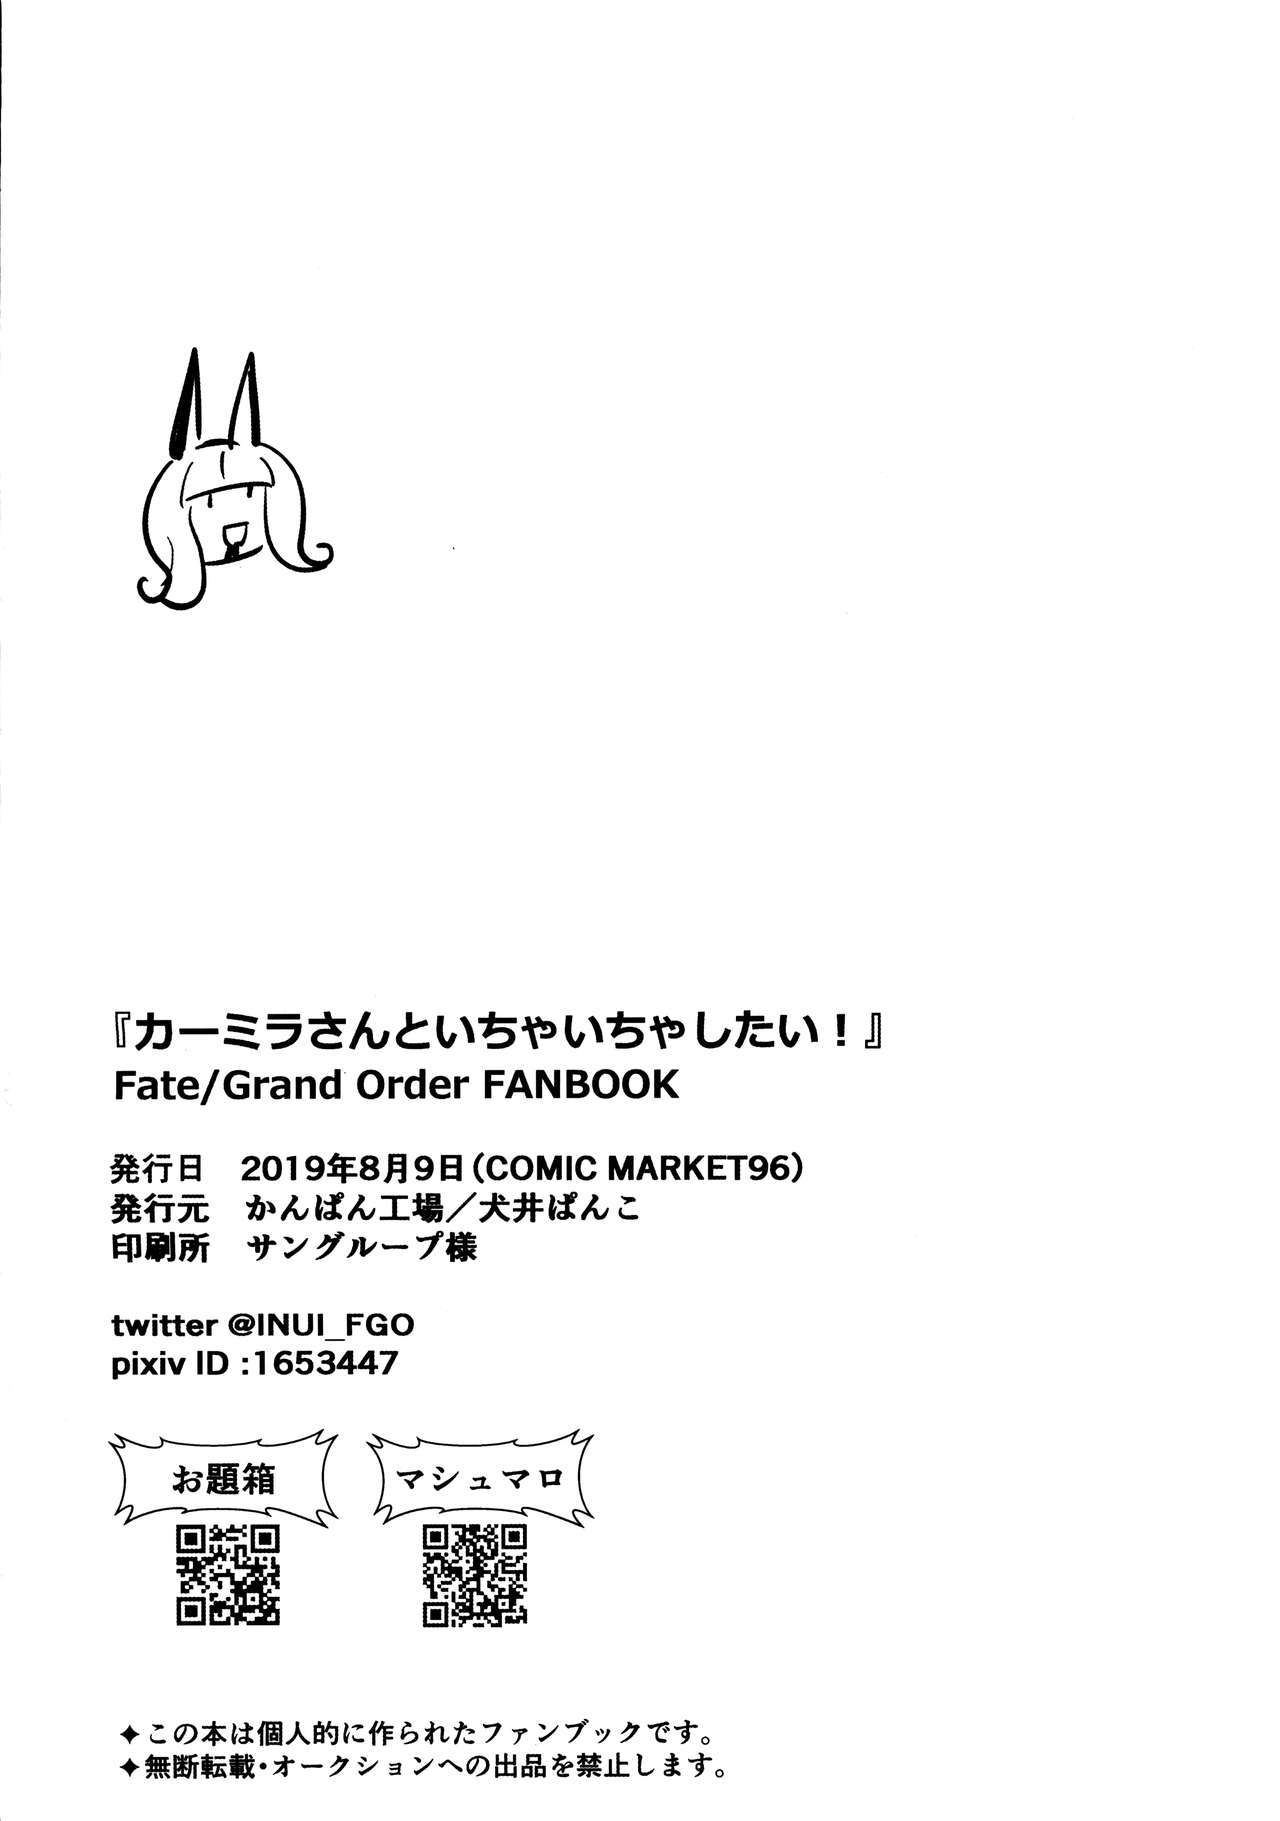 『カーミラさんといちゃいちゃしたい！』
Fate/Grand Order FANBOOK
発行日　2019年8月9日(COMIC MARKET96)
発行元　かんぱん工場／犬井ぱんこ
印刷所　サングループ様
twitter @INUI_FGO
pixiv ID :1653447
お題箱　マシュマロ
✦この本は個人的に作られたファンブックです。
✦無断転載・オークションへの出品を禁止します。